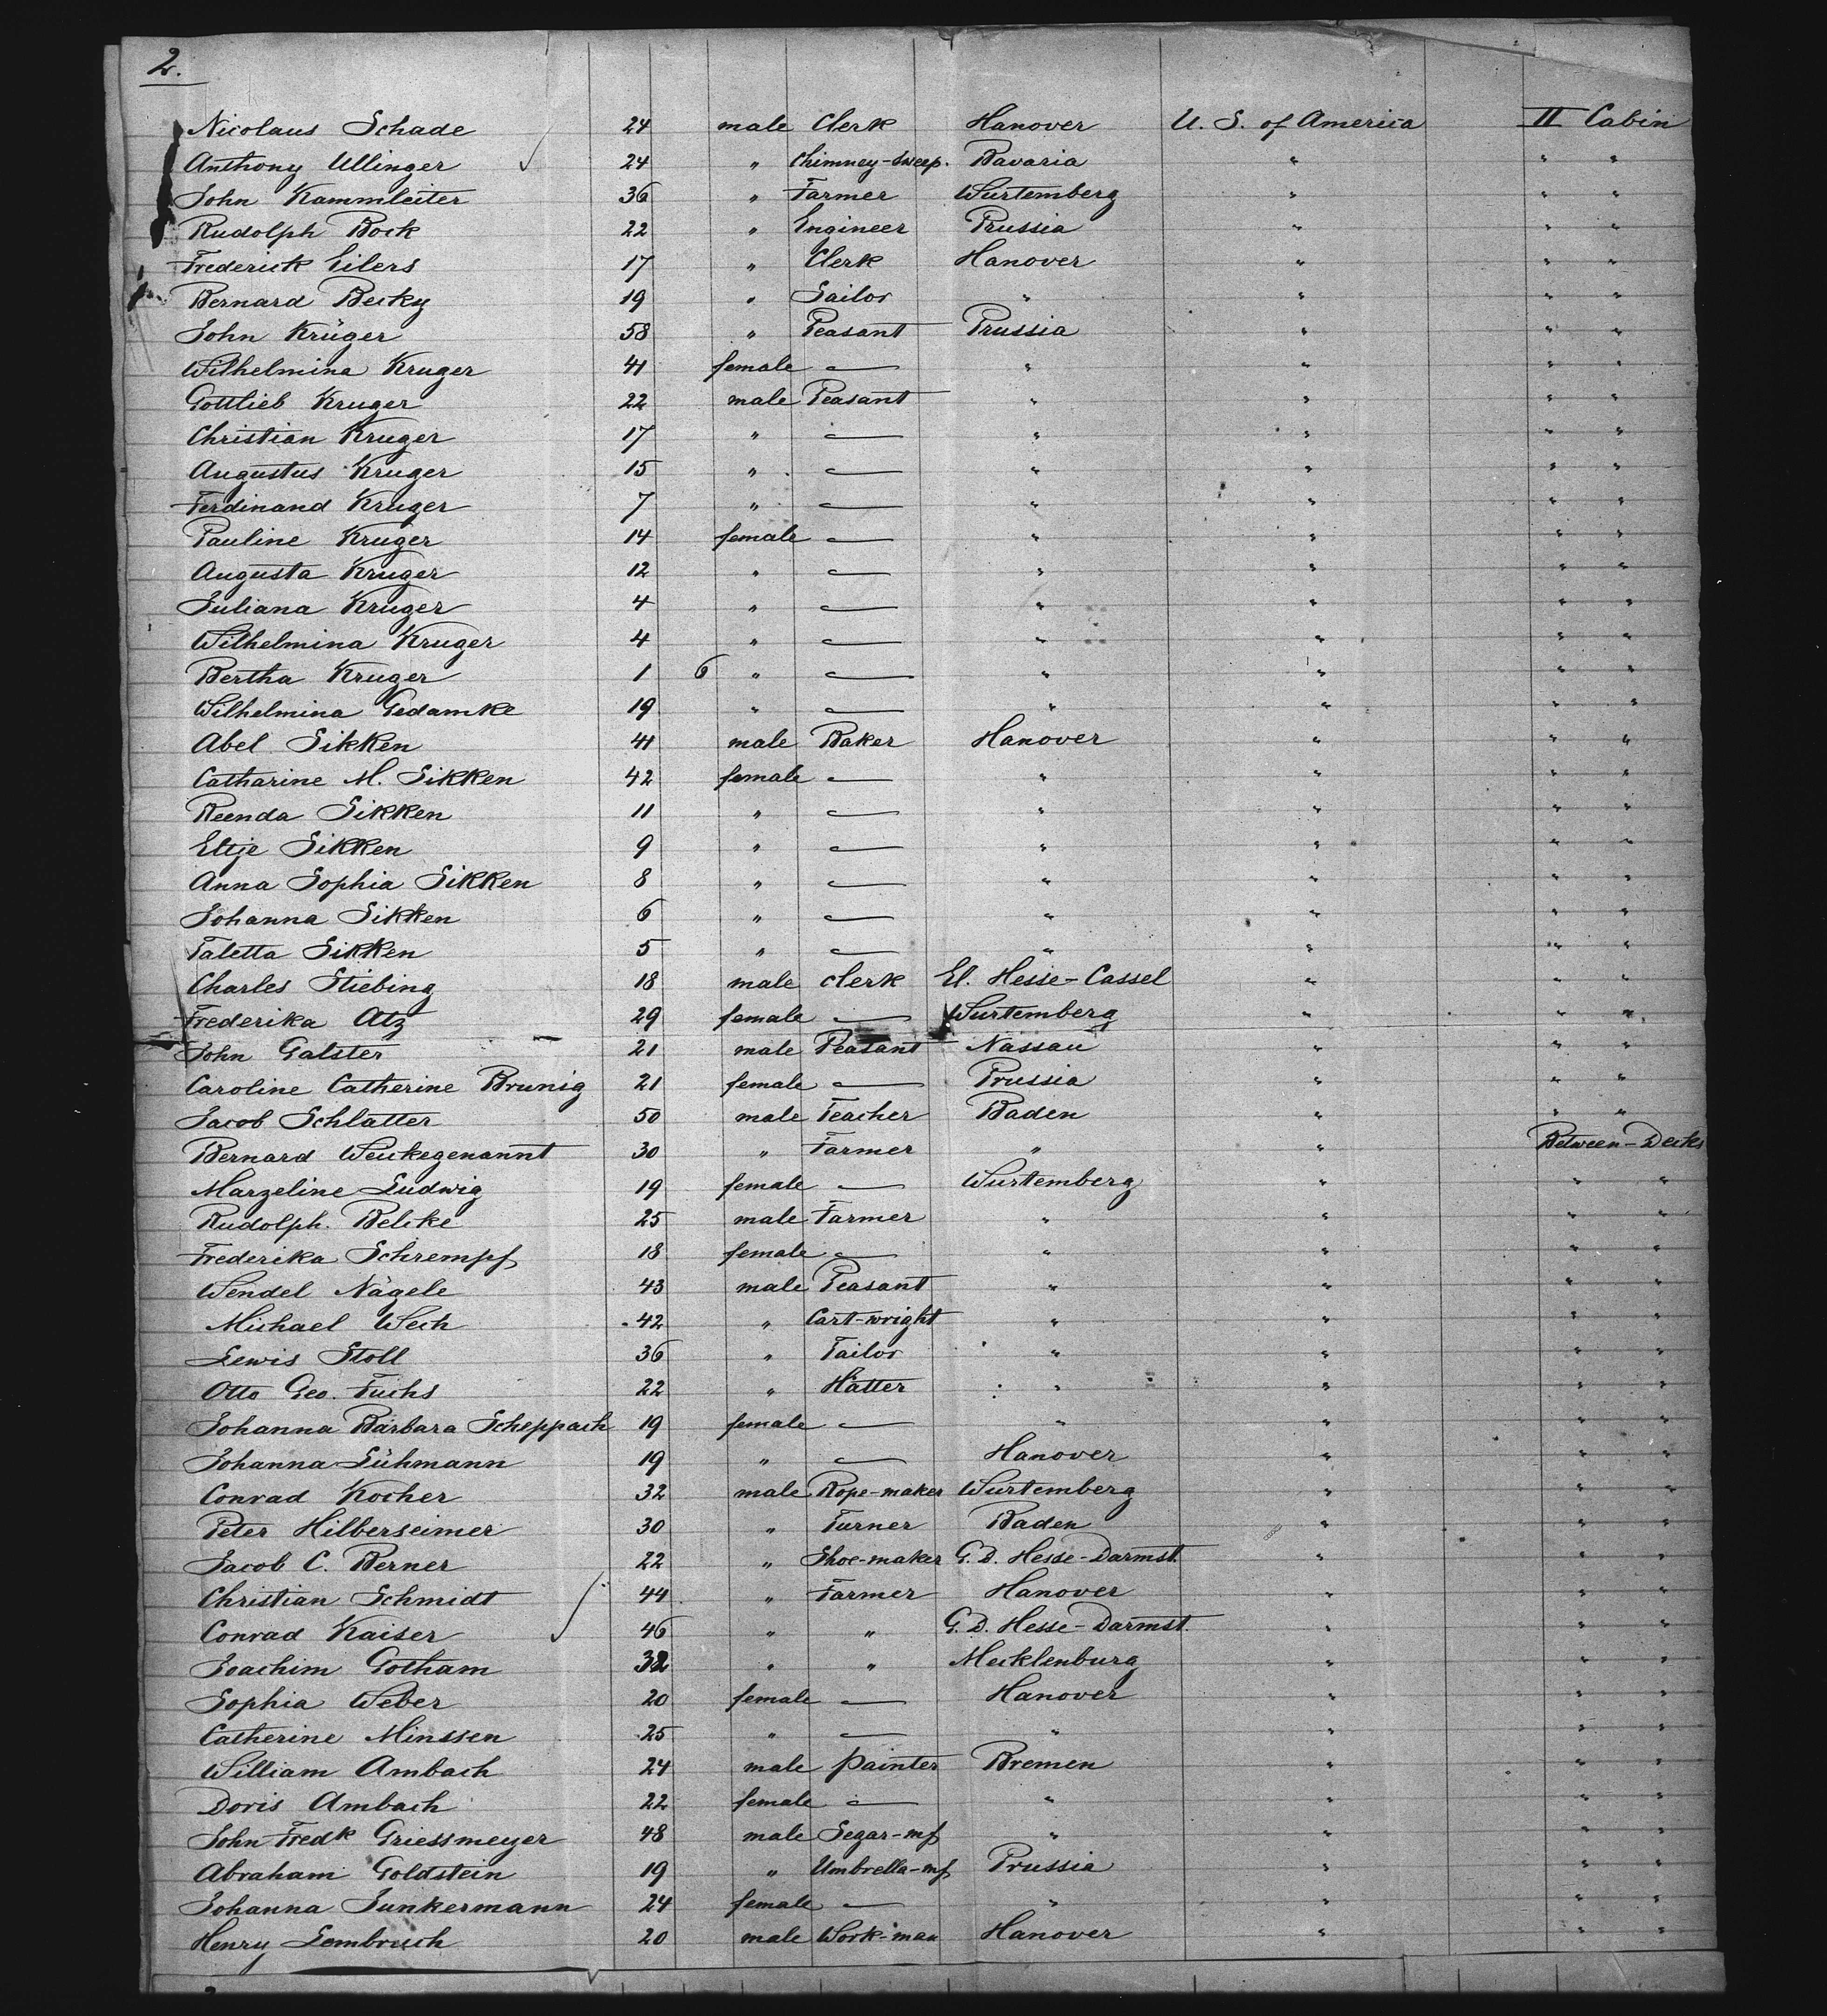 2.
Nicolaus Schade 24 male Clerk Hanover U. S. of America II Cabin
Anthony Ullinger 24 " Chimney-sweep. Bavaria " " "
John Kammleiter 36 " Farmer Wurtemberg " " "
Rudolph Bock 22 " Engineer Prussia " " "
Frederick Eilers 17 " Clerk Hanover " " "
Bernard Becky 19 " Sailor " " " "
John Krüger 58 " Peasant Prussia " " "
Wilhelmina Kruger 41 female — " " " "
Gottlieb Kruger 22 male Peasant " " " "
Christian Kruger 17 " — " " " "
Augustus Kruger 15 " — " " " "
Ferdinand Kruger 7 " — " " " "
Pauline Kruger 14 female — " " " "
Augusta Kruger 12 " — " " " "
Juliana Kruger 4 " — " " " "
Wilhelmina Kruger 4 " — " " " "
Bertha Kruger 1 6 " — " " " "
Wilhelmina Gedamke 19 " — " " " "
Abel Sikken 41 male Baker Hanover " " "
Catharine M. Sikken 42 female — " " " "
Reenda Sikken 11 " — " " " "
Eltje Sikken 9 " — " " " "
Anna Sophia Sikken 8 " — " " " "
Johanna Sikken 6 " — " " " "
Taletta Sikken 5 " — " " " "
Charles Stiebing 18 male clerk El. Hesse-Cassel " " "
Frederika Atz 29 female — Wurtemberg " " "
John Galster 21 male Peasant Nassau " " "
Caroline Catherine Brunig 21 female — Prussia " " "
Jacob Schlatter 50 male Teacher Baden " " "
Bernard Weickegenannt 30 " Farmer " " Between-Decks
Marzeline Ludwig 19 female — Wurtemberg " " "
Rudolph Belcke 25 male Farmer " " " "
Frederika Schrempf 18 female — " " " "
Wendel Nägele 43 male Peasant " " " "
Michael Wech 42 " Cart-wright " " " "
Lewis Stoll 36 " Tailor " " " "
Otto Geo. Fuchs 22 " Hatter " " " "
Johanna Barbara Scheppach 19 female — " " " "
Johanna Lühmann 19 " — Hanover " " "
Conrad Kocher 32 male Rope-maker Wurtemberg " " "
Peter Hilberseimer 30 " Turner Baden " " "
Jacob C. Berner 22 " Shoe-maker G. D. Hesse-Darmst. " " "
Christian Schmidt 44 " Farmer Hanover " " "
Conrad Kaiser 46 " " G. D. Hesse-Darmst. " " "
Joachim Gotham 32 " " Mecklenburg " " "
Sophia Weber 20 female — Hanover " " "
Catherine Minssen 25 " — " " " "
William Ambach 24 male painter Bremen " " "
Doris Ambach 22 female — " " " "
John Fredk Griessmeyer 48 male Segar-mf " " " "
Abraham Goldstein 19 " Umbrella-mf Prussia " " "
Johanna Junkermann 24 female — " " " "
Henry Lembruch 20 male Work-man Hanover " " "